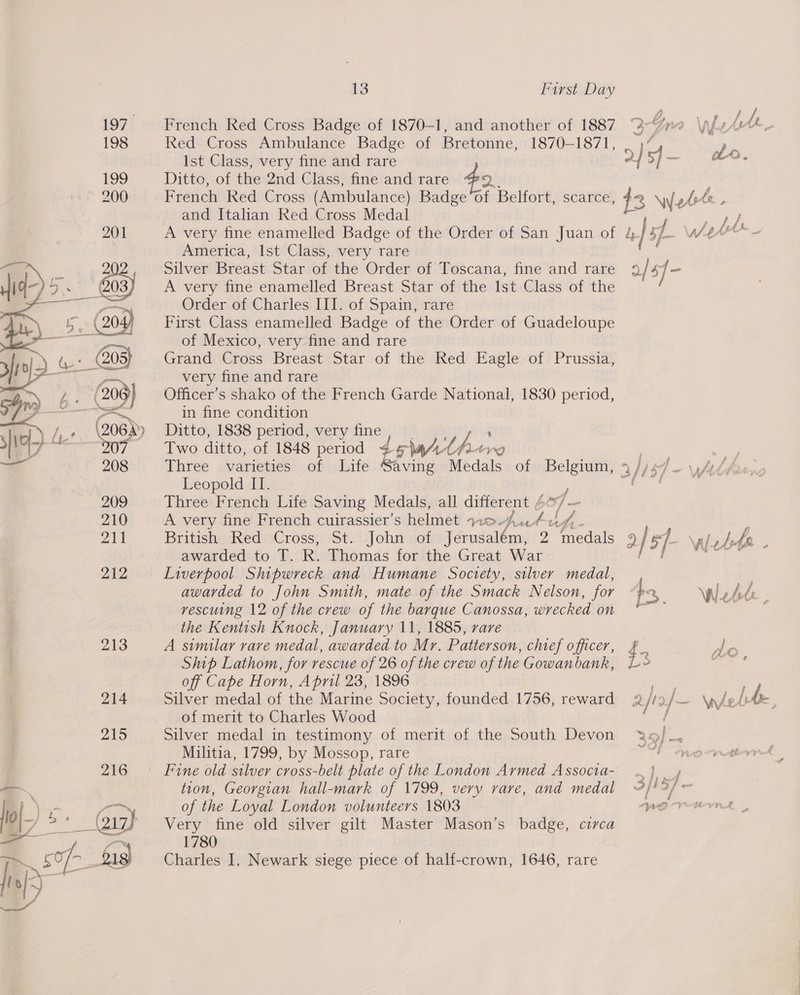 13 First Day
197 French Red Cross Badge of 1870–1, and another of 1887
198 Red Cross Ambulance Badge of Bretonne, 1870–1871,
1st Class, very fine and rare 2/5/– do.
199 Ditto, of the 2nd Class, fine and rare £2.
200 French Red Cross (Ambulance) Badge of Belfort, scarce, £2 Webbe.
and Italian Red Cross Medal
201 A very fine enamelled Badge of the Order of San Juan of
America, 1st Class, very rare
202 Silver Breast Star of the Order of Toscana, fine and rare 2/5/–
203 A very fine enamelled Breast Star of the 1st Class of the
Order of Charles III. of Spain, rare
5. 204 First Class enamelled Badge of the Order of Guadeloupe
of Mexico, very fine and rare
205 Grand Cross Breast Star of the Red Eagle of Prussia,
very fine and rare
6. 206 Officer's shako of the French Garde National, 1830 period,
in fine condition
206A Ditto, 1838 period, very fine
207 Two ditto, of 1848 period
208 Three varieties of Life Saving Medals of Belgium,
Leopold II.
209 Three French Life Saving Medals, all different
210 A very fine French cuirassier's helmet
211 British Red Cross, St. John of Jerusalem, 2 medals 2/5/–
awarded to T. R. Thomas for the Great War
212 Liverpool Shipwreck and Humane Society, silver medal,
awarded to John Smith, mate of the Smack Nelson, for
rescuing 12 of the crew of the barque Canossa, wrecked on
the Kentish Knock, January 11, 1885, rare
213 A similar rare medal, awarded to Mr. Patterson, chief officer, do.
Ship Lathom, for rescue of 26 of the crew of the Gowanbank,
off Cape Horn, April 23, 1896
214 Silver medal of the Marine Society, founded 1756, reward
of merit to Charles Wood
215 Silver medal in testimony of merit of the South Devon
Militia, 1799, by Mossop, rare
216 Fine old silver cross-belt plate of the London Armed Associa-
tion, Georgian hall-mark of 1799, very rare, and medal 3/15/–
of the Loyal London volunteers 1803
217 Very fine old silver gilt Master Mason's badge, circa
1780
218 Charles I. Newark siege piece of half-crown, 1646, rare